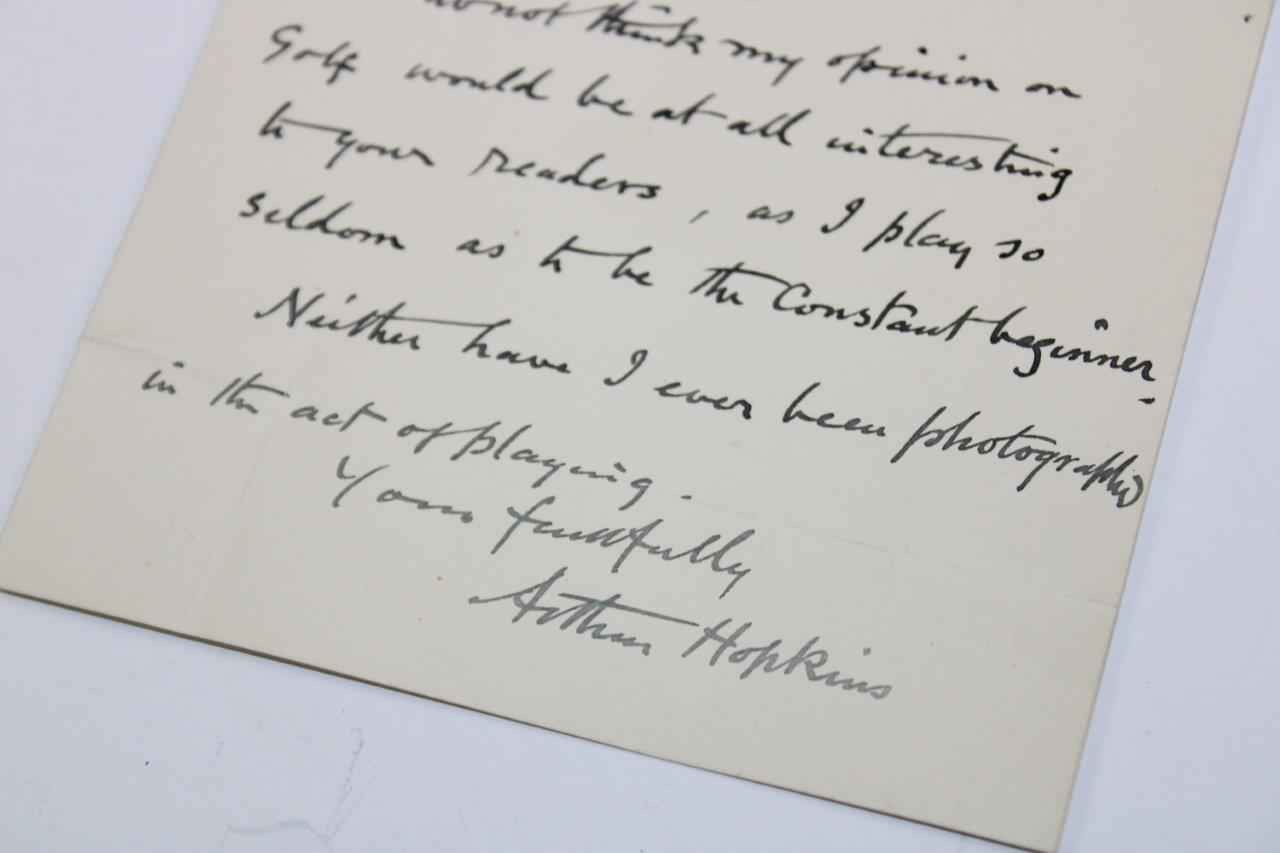 do not think my opinion on
Golf would be at all interesting
to your readers, as I play so
seldom as to be the Constant beginner.
Neither have I ever been photographed
in the act of playing.
Yours faithfully
Arthur Hopkins